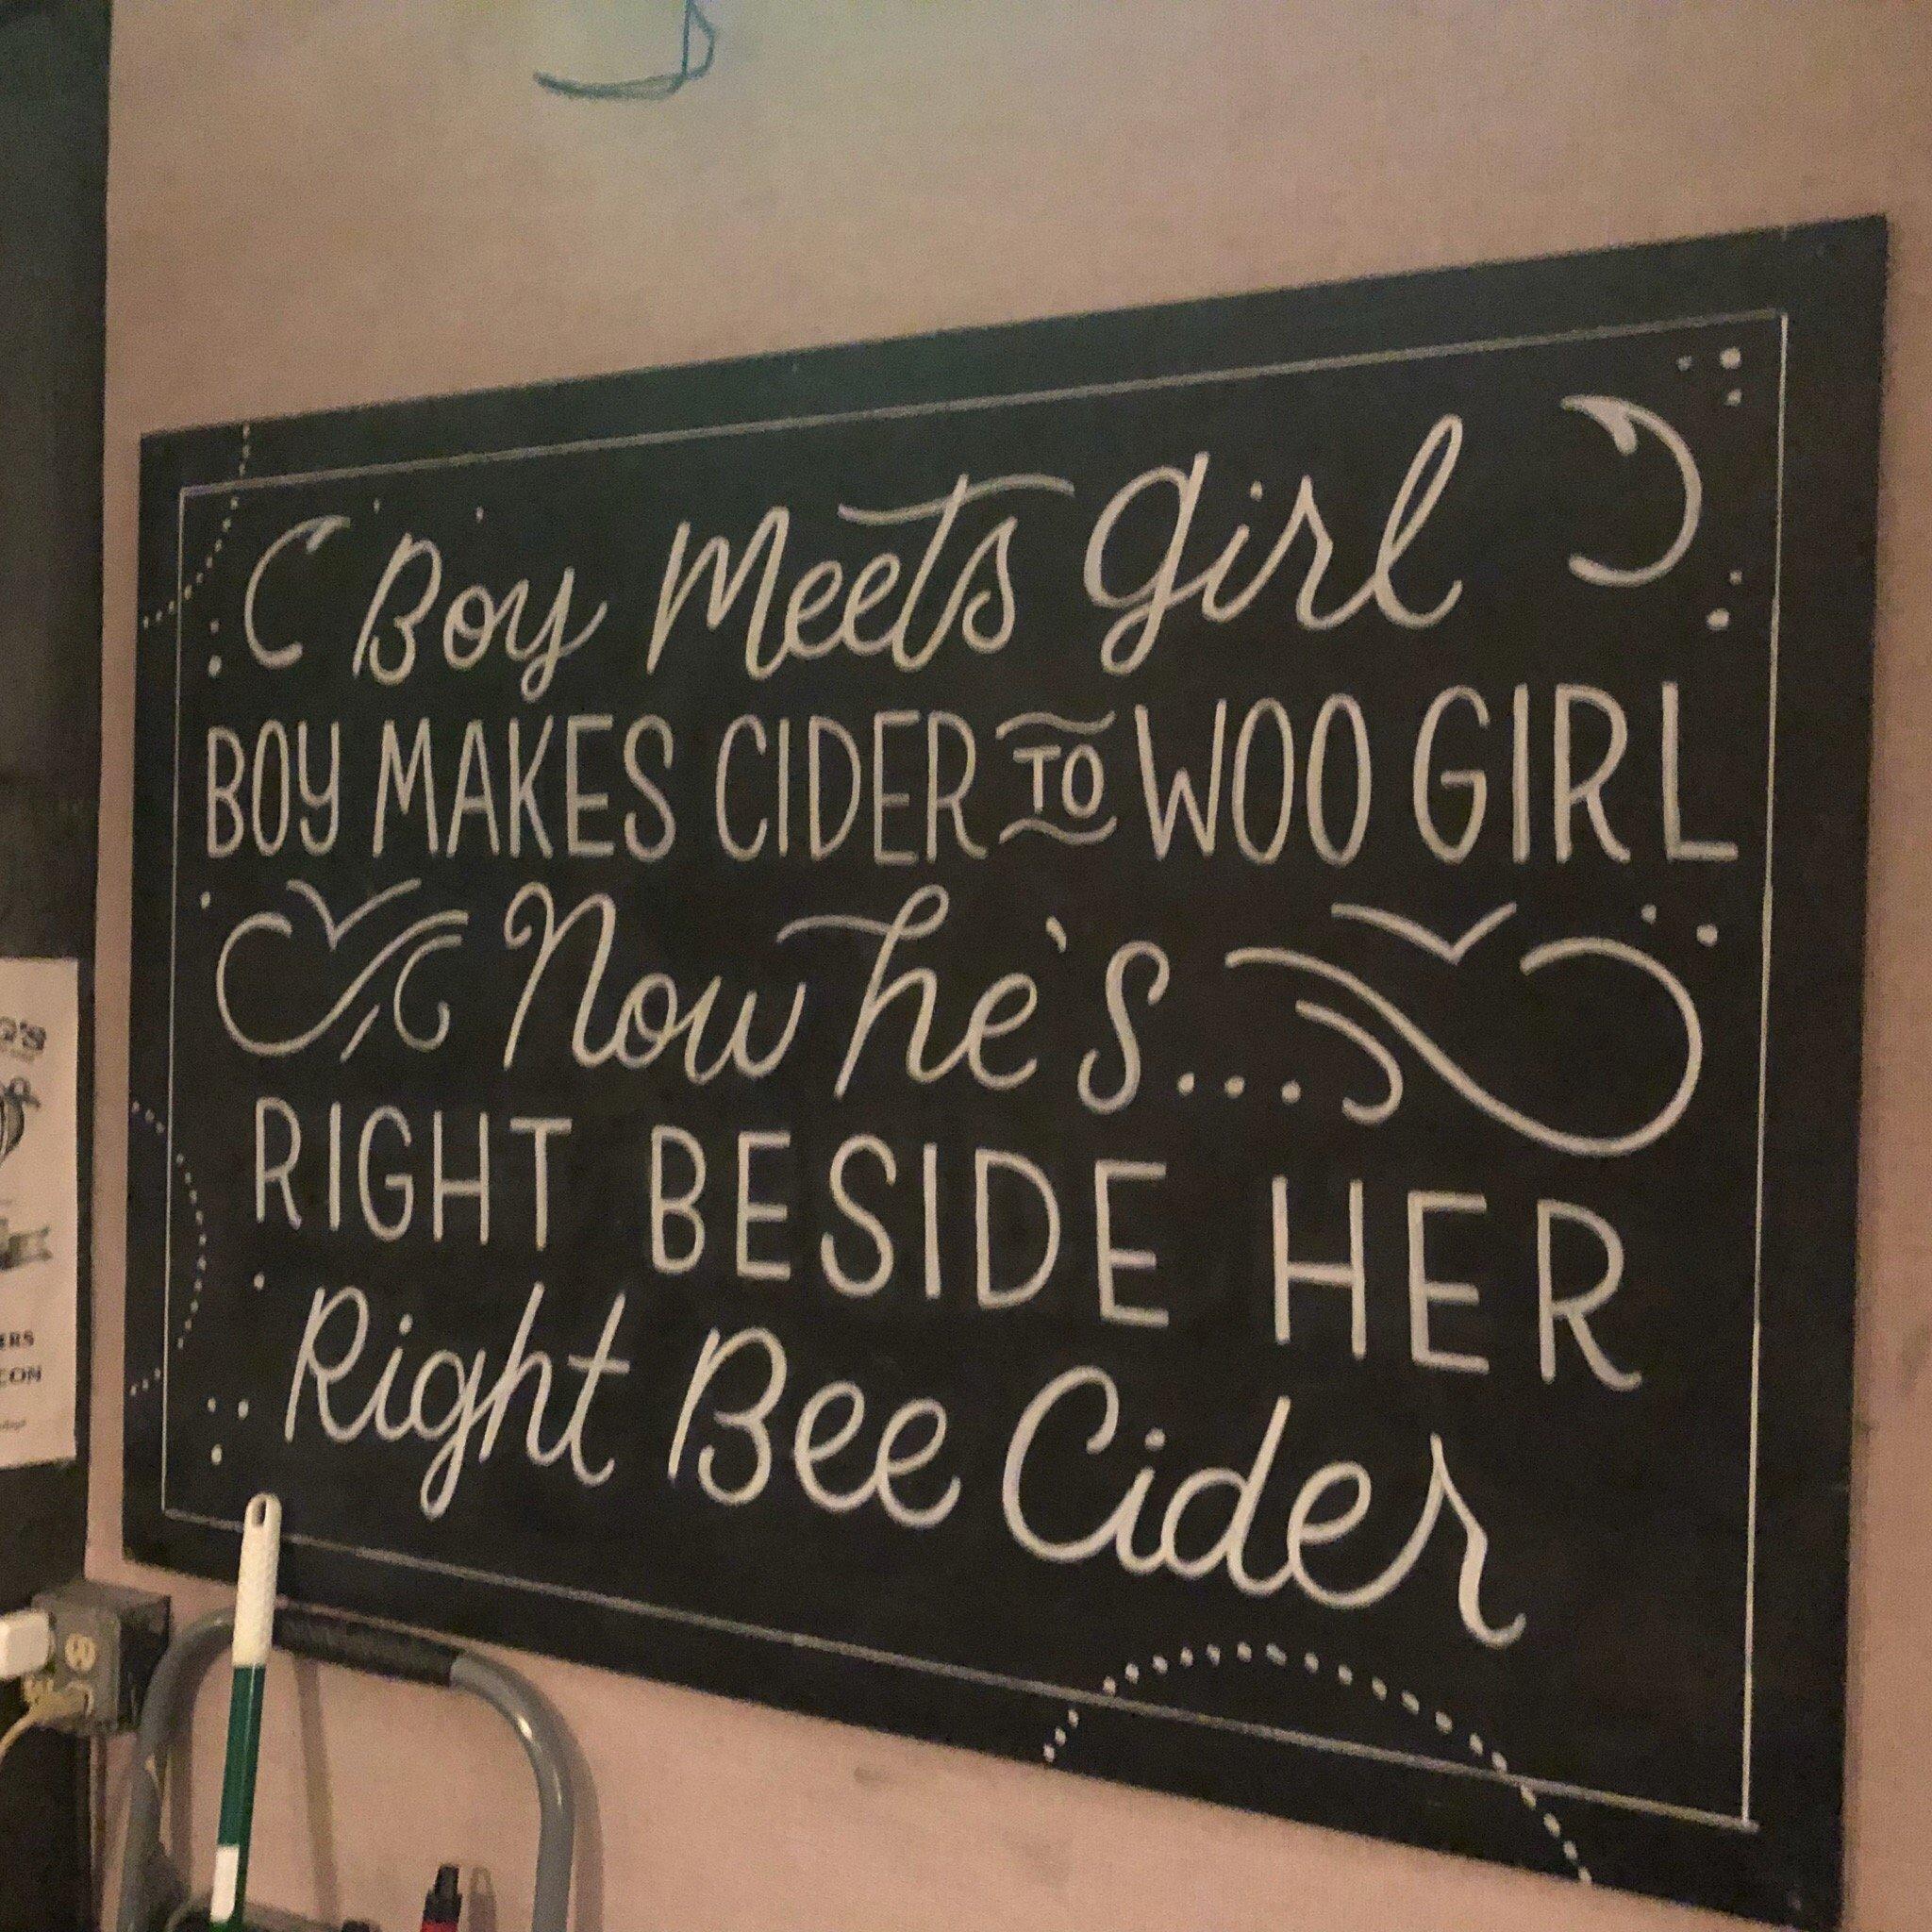 Boy Meets Girl
BOY MAKES CIDER TO WOO GIRL
Now he's...
RIGHT BESIDE HER
Right Bee Cider
Q'S
ERS
CON